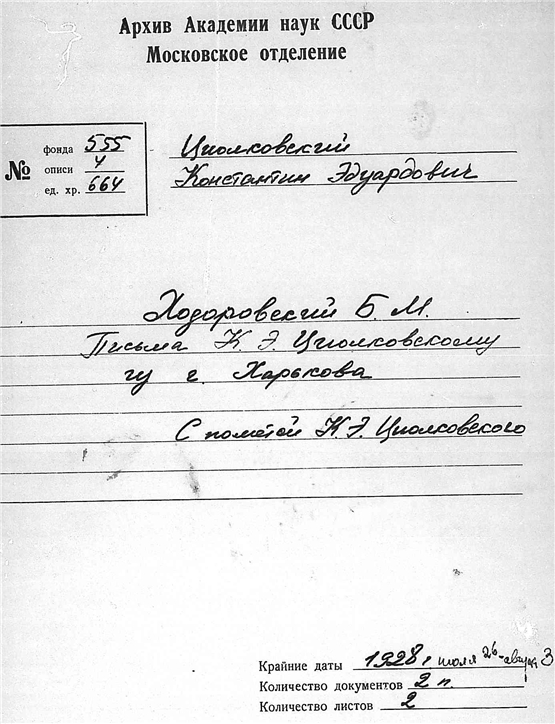 Архив Академии наук СССР
Московское отделение
№
фонда 555
описи 4
ед. хр. 664
Циолковский
Константин Эдуардович
Ходоровский Б. М.
Письма К. Э. Циолковскому
из г. Харькова
С пометой К.Э. Циолковского
Крайние даты 1928 г. июля 26-августа 3
Количество документов 2 п.
Количество листов 2